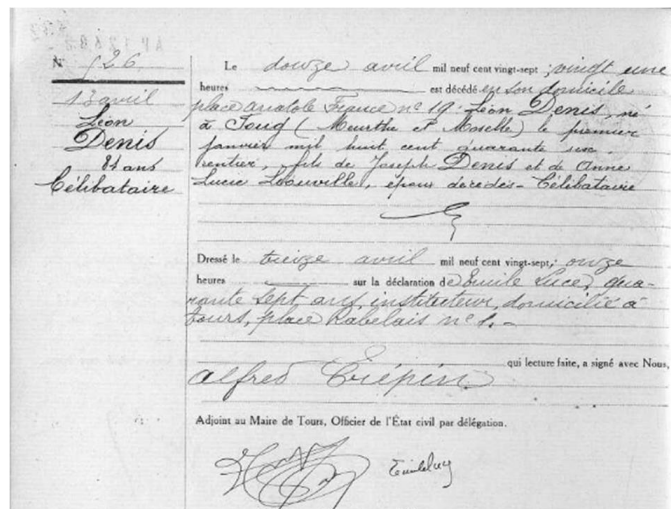 N° 526
13 avril
Léon
Denis
81 ans
Célibataire
Le douze avril mil neuf cent vingt-sept, vingt une
heures est décédé en son domicile
place anatole France n° 19. Léon Denis, né
à Foug (Meurthe et Moselle) le premier
janvier mil huit cent quarante six
rentier, fils de Joseph Denis et de Anne
Lucie Liouville, époux décédés - Célibataire
Dressé le treize avril mil neuf cent vingt-sept, onze
heures sur la déclaration de Emile Luce, qua-
rante sept ans, instituteur, domicilié à
Tours, place Rabelais n° 1. -
qui lecture faite, a signé avec Nous,
alfred Crépin
Adjoint au Maire de Tours, Officier de l'État civil par délégation.